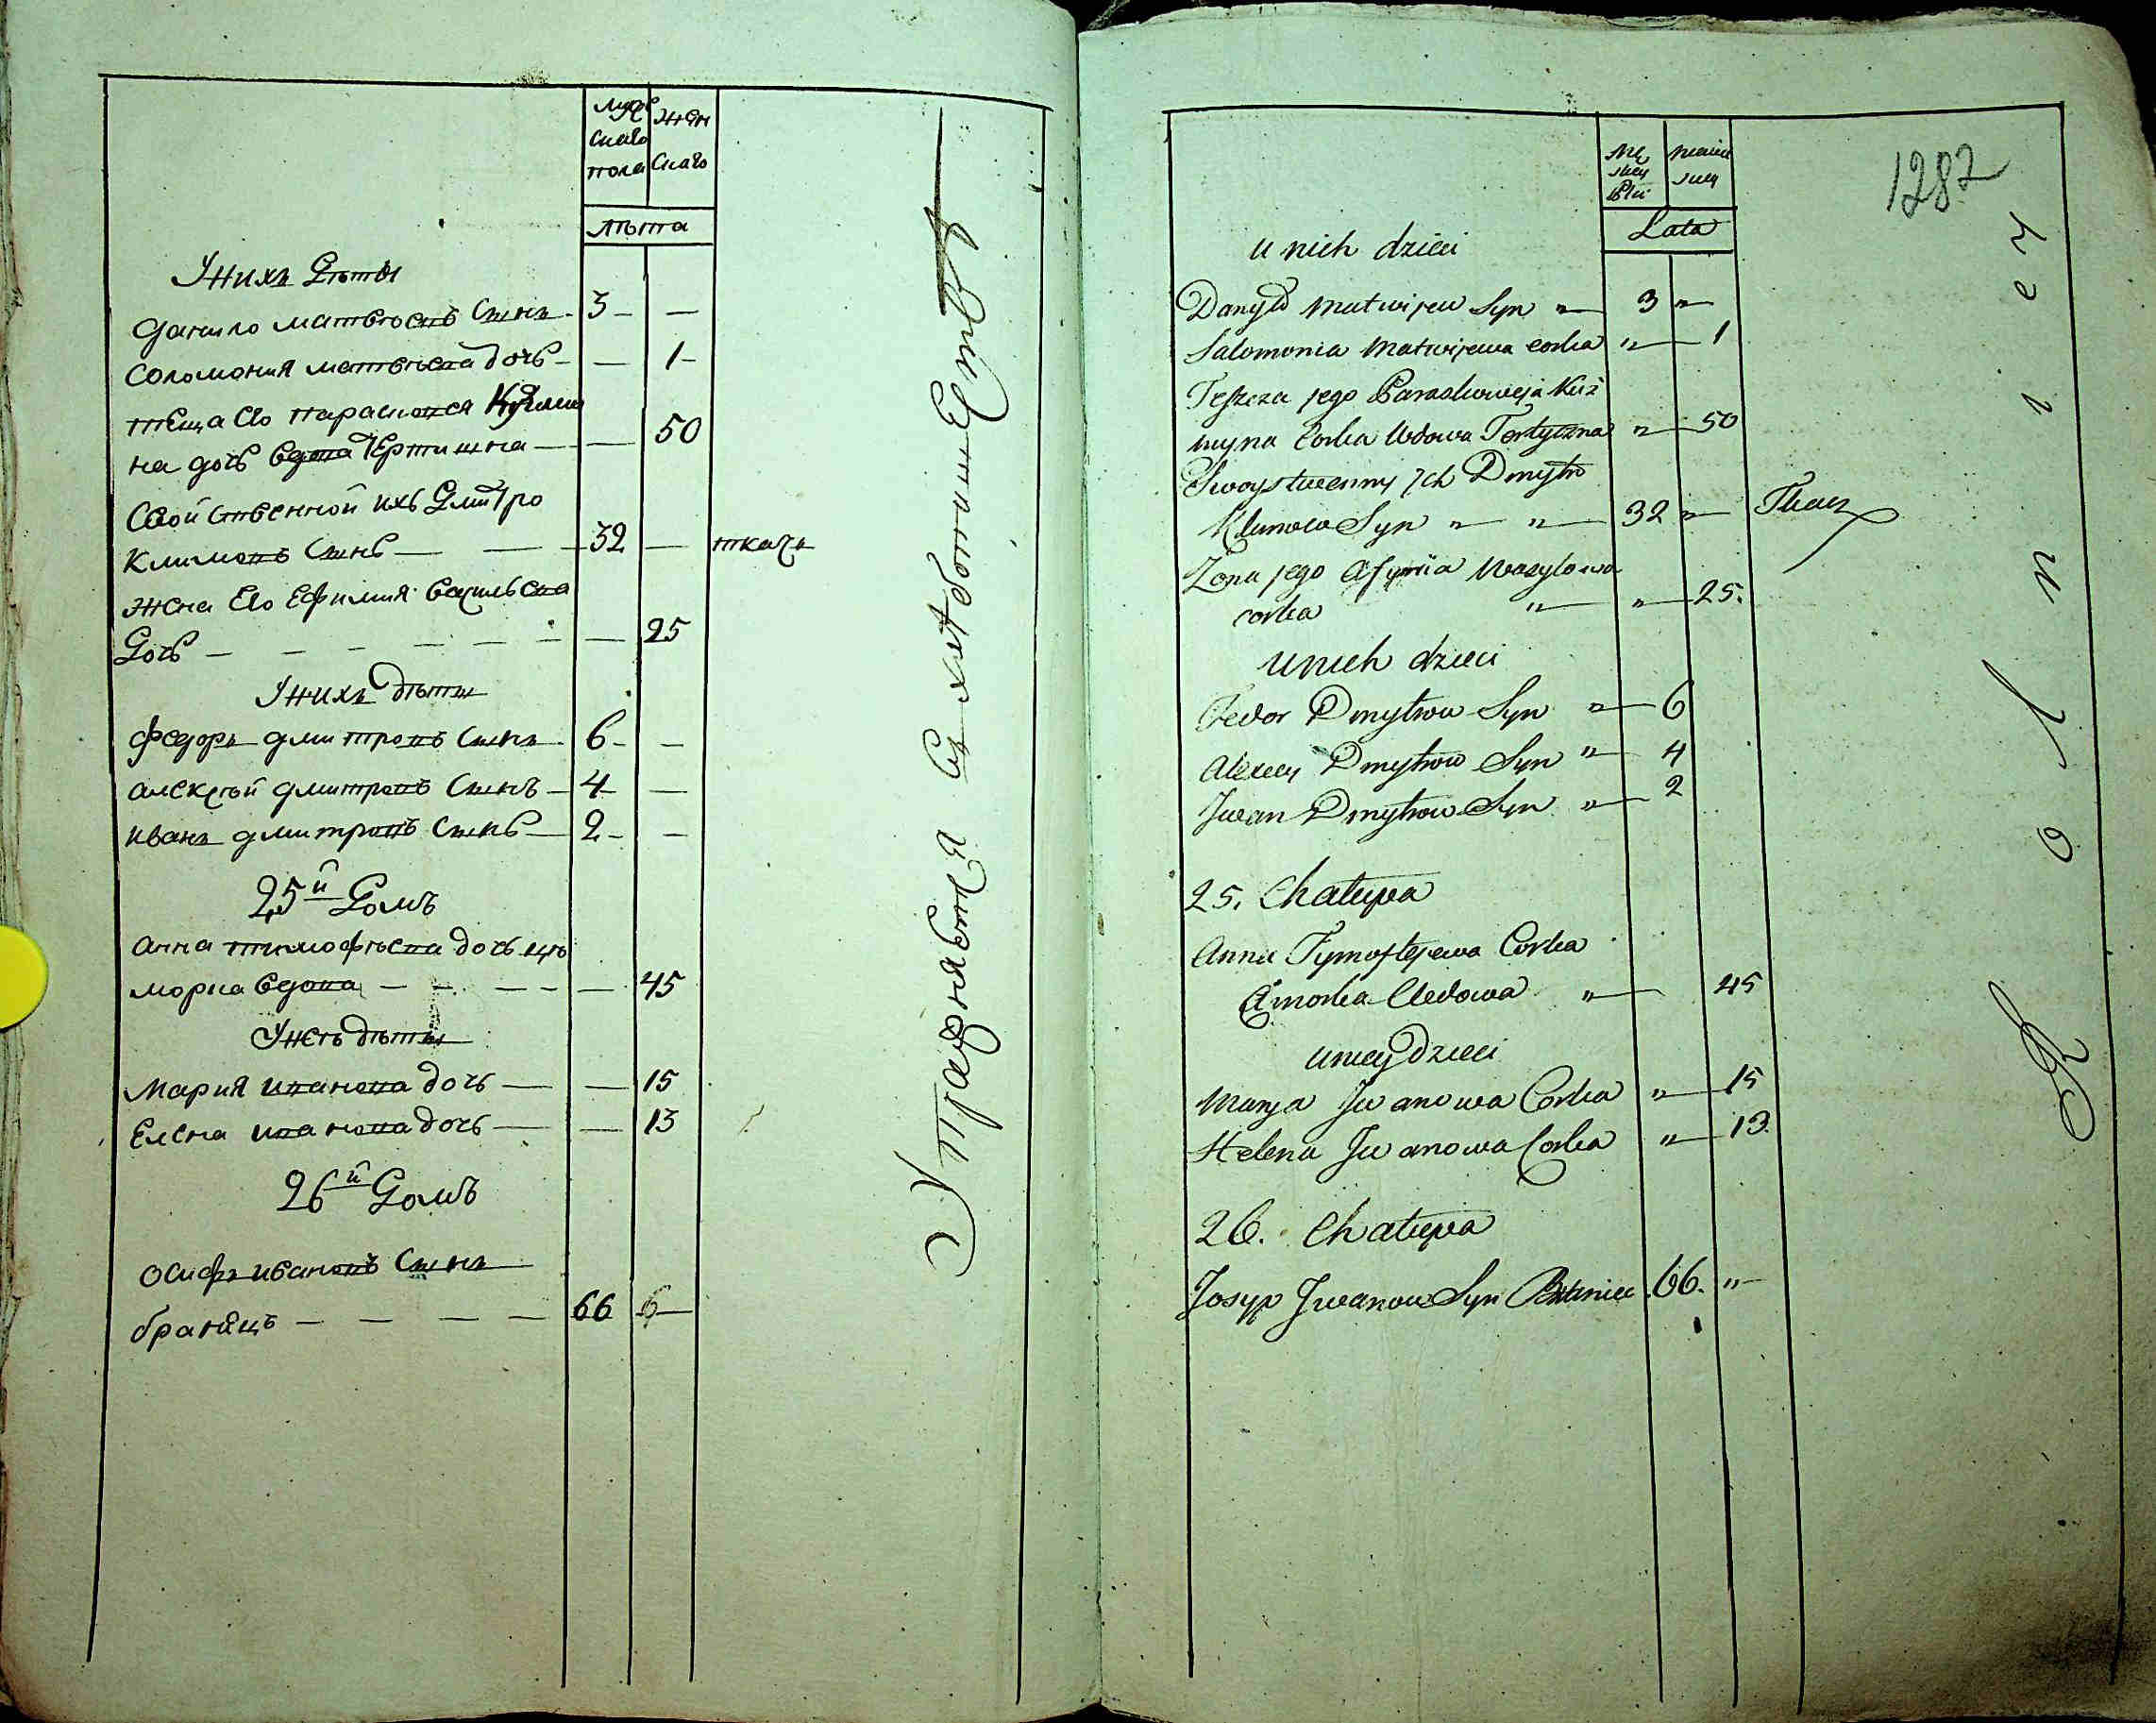 мужскаго пола
женскаго
лѣта
У нихъ дѣти
данило матвѣевъ сынъ 3 —
соломония матвѣева дочь — 1
теща его парасковея Кузми
на дочь вдова — 50
свойственной ихъ дмитро
климовъ сынъ — 32 — ткачь
жена его ефимия васильева
дочь — 25
У нихъ дѣти
федоръ дмитровъ сынъ 6 —
алексѣй дмитровъ сынъ 4 —
иванъ дмитровъ сынъ 2 —
25й домъ
анна тимофѣева дочь цы
морка вдова — 45
У неѣ дѣти
мария иванова дочь — 15
елена иванова дочь — 13
26й домъ
осифъ ивановъ сынъ
66
Lata
1282
u nich dzieci
Danyło Matwijew Syn " 3 "
Salomonia Matwijewa corka " 1
jego Paraskowieja Kuź
myna Corka Wdowa " 50
Swoystwenny Ich Dmytro
Klimow Syn " " 32 " Tkacz
Zona jego Afymia Wasylowa
corka " " 25.
u nich dzieci
Fedor Dmytrow Syn " 6
Alexey Dmytrow Syn " 4
Iwan Dmytrow Syn " 2
25. Chałupa
Anna Tymoftejewa Corka
Cimorka Wdowa " 45
u niey dzieci
Marya Iwanowa Corka " 15
Helena Iwanowa Corka " 13.
26. Chałupa
Josyp Iwanow Syn 66. "